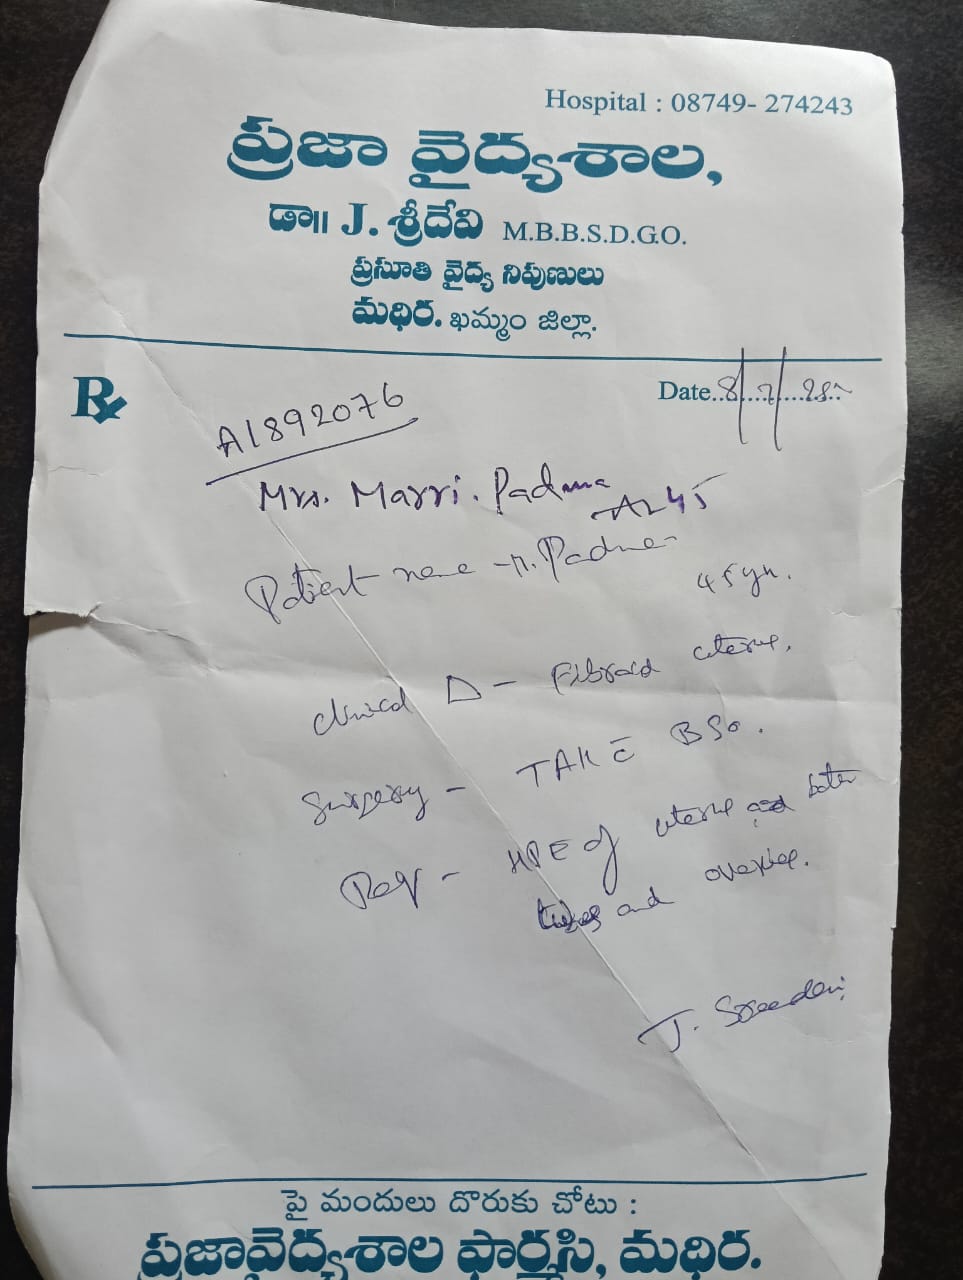 Hospital : 08749- 274243
ప్రజా వైద్యశాల,
డా|| J. శ్రీదేవి M.B.B.S.D.G.O.
ప్రసూతి వైద్య నిపుణులు
మధిర. ఖమ్మం జిల్లా.
Rx
Date..8/7/25
A1892076
Mrs. Marri. Padma
45
Patient name - M. Padma
45 yrs.
clinical D - Fibroid uterus.
Surgery - TAH c̄ BSO.
Req - HPE of uterus and both
tubes and ovaries.
J. Sreedevi
పై మందులు దొరుకు చోటు :
ప్రజావైద్యశాల ఫార్మసి, మధిర.